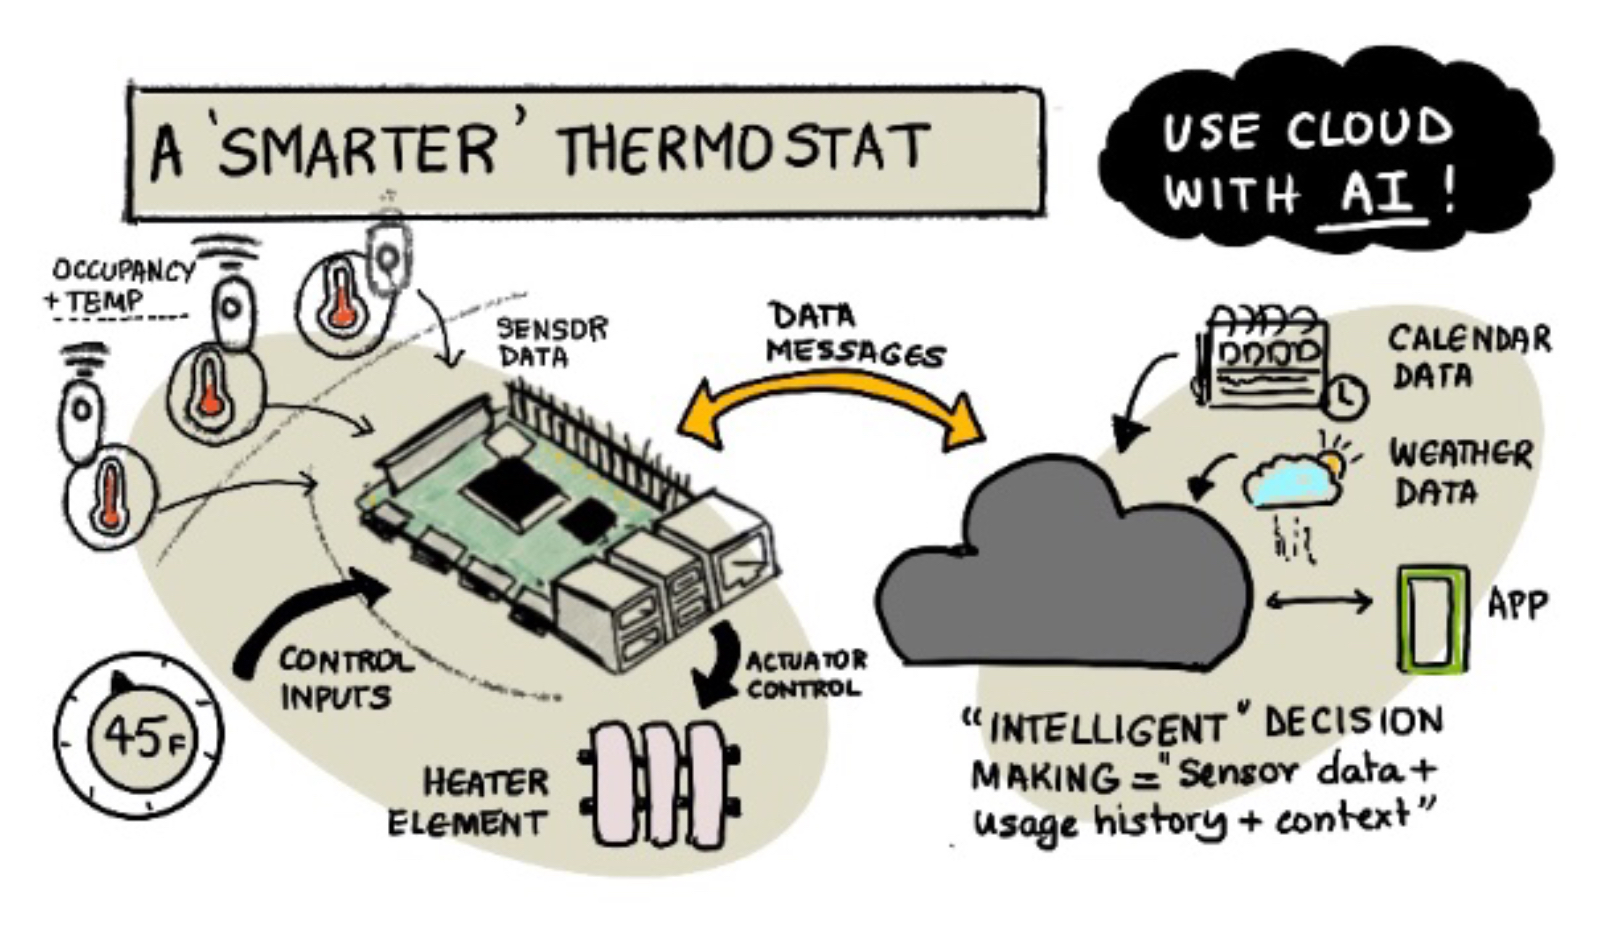 A 'SMARTER' THERMOSTAT
USE CLOUD
WITH AI!
OCCUPANCY
+ TEMP
SENSOR
DATA
DATA
MESSAGES
CALENDAR
DATA
WEATHER
DATA
APP
CONTROL
INPUTS
ACTUATOR
CONTROL
45F
HEATER
ELEMENT
"INTELLIGENT" DECISION
MAKING = "Sensor data +
usage history + context"